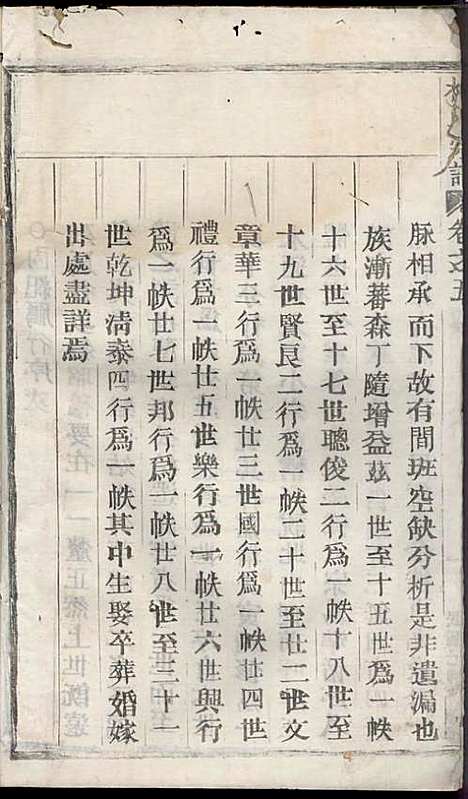 脉相承而下故有間班空缺分析是非遺漏也
族漸蕃森丁隨增益玆一世至十五世爲一帙
十六世至十七世聰俊二行爲一帙十八世至
十九世賢良二行爲一帙二十世至廿二世文
章華三行爲一帙廿三世國行爲一帙廿四世
禮行爲一帙廿五世樂行爲一帙廿六世興行
爲一帙廿七世邦行爲一帙廿八世至三十一
世乾坤清泰四行爲一帙其中生娶卒葬婚嫁
出處盡詳焉